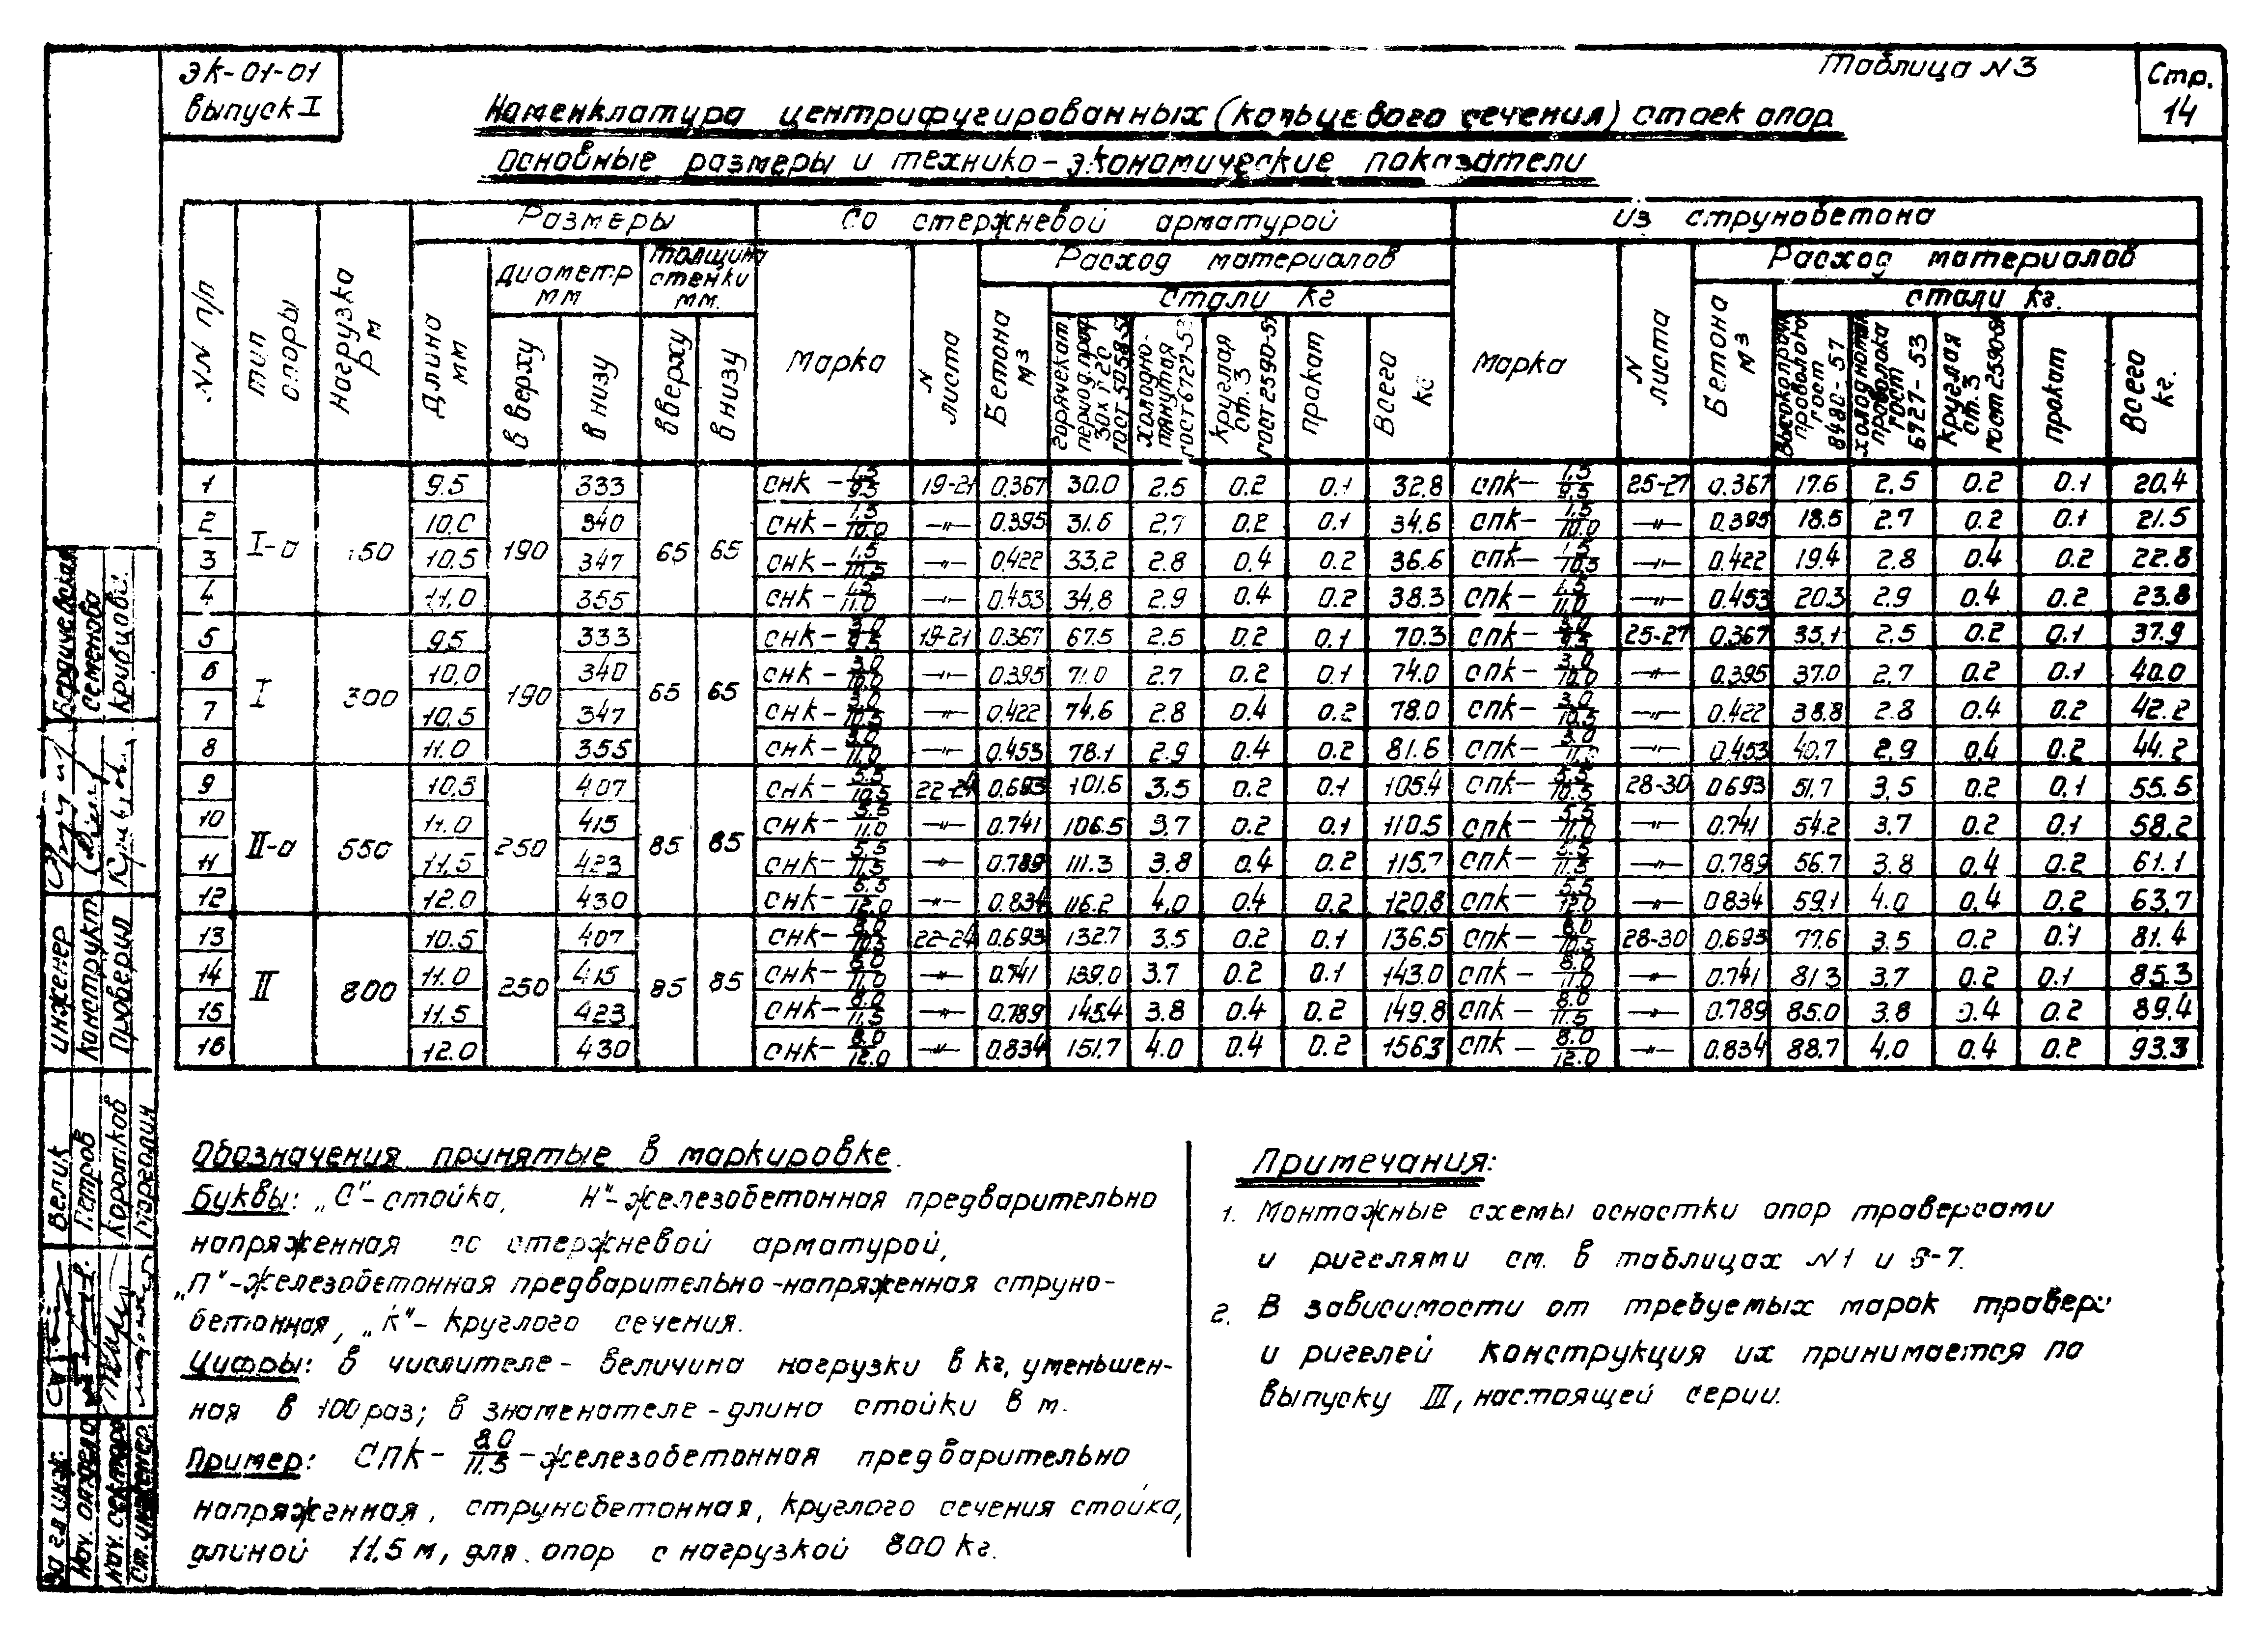 ЭК-01-01
Выпуск I
Таблица N3
Стр.
14
Номенклатура центрифугированных (кольцевого сечения) стоек опор
Основные размеры и технико-экономические показатели
NN п/п
Тип опоры
Нагрузка Рм
Размеры
Длина мм
Диаметр мм
в верху
в низу
Толщина стенки мм.
вверху
в низу
Со стержневой арматурой
Марка
N листа
Расход материалов
Бетона м3
Стали кг
горячекат. период. проф. 30хГ2С ГОСТ 5058-57
холодно-тянутая ГОСТ 6727-53
круглая ст.3 ГОСТ 2590-57
прокат
Всего кг
Из струнобетона
Марка
N листа
Расход материалов
Бетона м3
Стали кг.
Высокопрочн. проволока ГОСТ 8480-57
холоднотян. проволока ГОСТ 6727-53
круглая ст.3 ГОСТ 2590-57
прокат
Всего кг.
1 I-а 150 9.5 190 333 65 65 СНК-1.5/9.5 19-21 0.367 30.0 2.5 0.2 0.1 32.8 СПК-1.5/9.5 25-27 0.367 17.6 2.5 0.2 0.1 20.4
2 10.0 340 СНК-1.5/10.0 —"— 0.395 31.6 2.7 0.2 0.1 34.6 СПК-1.5/10.0 —"— 0.395 18.5 2.7 0.2 0.1 21.5
3 10.5 347 СНК-1.5/10.5 —"— 0.422 33.2 2.8 0.4 0.2 36.6 СПК-1.5/10.5 —"— 0.422 19.4 2.8 0.4 0.2 22.8
4 11.0 355 СНК-1.5/11.0 —"— 0.453 34.8 2.9 0.4 0.2 38.3 СПК-1.5/11.0 —"— 0.453 20.3 2.9 0.4 0.2 23.8
5 I 300 9.5 190 333 65 65 СНК-3.0/9.5 19-21 0.367 67.5 2.5 0.2 0.1 70.3 СПК-3.0/9.5 25-27 0.367 35.1 2.5 0.2 0.1 37.9
6 10.0 340 СНК-3.0/10.0 —"— 0.395 71.0 2.7 0.2 0.1 74.0 СПК-3.0/10.0 —"— 0.395 37.0 2.7 0.2 0.1 40.0
7 10.5 347 СНК-3.0/10.5 —"— 0.422 74.6 2.8 0.4 0.2 78.0 СПК-3.0/10.5 —"— 0.422 38.8 2.8 0.4 0.2 42.2
8 11.0 355 СНК-3.0/11.0 —"— 0.453 78.1 2.9 0.4 0.2 81.6 СПК-3.0/11.0 —"— 0.453 40.7 2.9 0.4 0.2 44.2
9 II-а 550 10.5 250 407 85 85 СНК-5.5/10.5 22-24 0.693 101.6 3.5 0.2 0.1 105.4 СПК-5.5/10.5 28-30 0.693 51.7 3.5 0.2 0.1 55.5
10 11.0 415 СНК-5.5/11.0 —"— 0.741 106.5 3.7 0.2 0.1 110.5 СПК-5.5/11.0 —"— 0.741 54.2 3.7 0.2 0.1 58.2
11 11.5 423 СНК-5.5/11.5 —"— 0.789 111.3 3.8 0.4 0.2 115.7 СПК-5.5/11.5 —"— 0.789 56.7 3.8 0.4 0.2 61.1
12 12.0 430 СНК-5.5/12.0 —"— 0.834 116.2 4.0 0.4 0.2 120.8 СПК-5.5/12.0 —"— 0834 59.1 4.0 0.4 0.2 63.7
13 II 800 10.5 250 407 85 85 СНК-8.0/10.5 22-24 0.693 132.7 3.5 0.2 0.1 136.5 СПК-8.0/10.5 28-30 0.693 77.6 3.5 0.2 0.1 81.4
14 11.0 415 СНК-8.0/11.0 —"— 0.741 139.0 3.7 0.2 0.1 143.0 СПК-8.0/11.0 —"— 0.741 81.3 3.7 0.2 0.1 85.3
15 11.5 423 СНК-8.0/11.5 —"— 0.789 145.4 3.8 0.4 0.2 149.8 СПК-8.0/11.5 —"— 0.789 85.0 3.8 0.4 0.2 89.4
16 12.0 430 СНК-8.0/12.0 —"— 0.834 151.7 4.0 0.4 0.2 156.3 СПК-8.0/12.0 —"— 0.834 88.7 4.0 0.4 0.2 93.3
Обозначения принятые в маркировке.
Буквы: „С"-стойка, Н"-железобетонная предварительно
напряженная со стержневой арматурой,
„П"-железобетонная предварительно-напряженная струно-
бетонная, „К"- круглого сечения.
Цифры: в числителе - величина нагрузки в кг, уменьшен-
ная в 100 раз; в знаменателе - длина стойки в м.
Пример: СПК- 8.0/11.5 - железобетонная предварительно
напряженная, струнобетонная, круглого сечения стойка,
длиной 11.5 м, для опор с нагрузкой 800 кг.
Примечания:
1. Монтажные схемы оснастки опор траверсами
и ригелями см. в таблицах N1 и 6-7.
2. В зависимости от требуемых марок траверс
и ригелей конструкция их принимается по
выпуску III, настоящей серии.
Бердичевская
Семенова
Кривцов
инженер
Конструкт.
Проверил
Велик
Петров
Коротков
Марголин
Нач. отдела
Нач. сектора
Ст. инженер